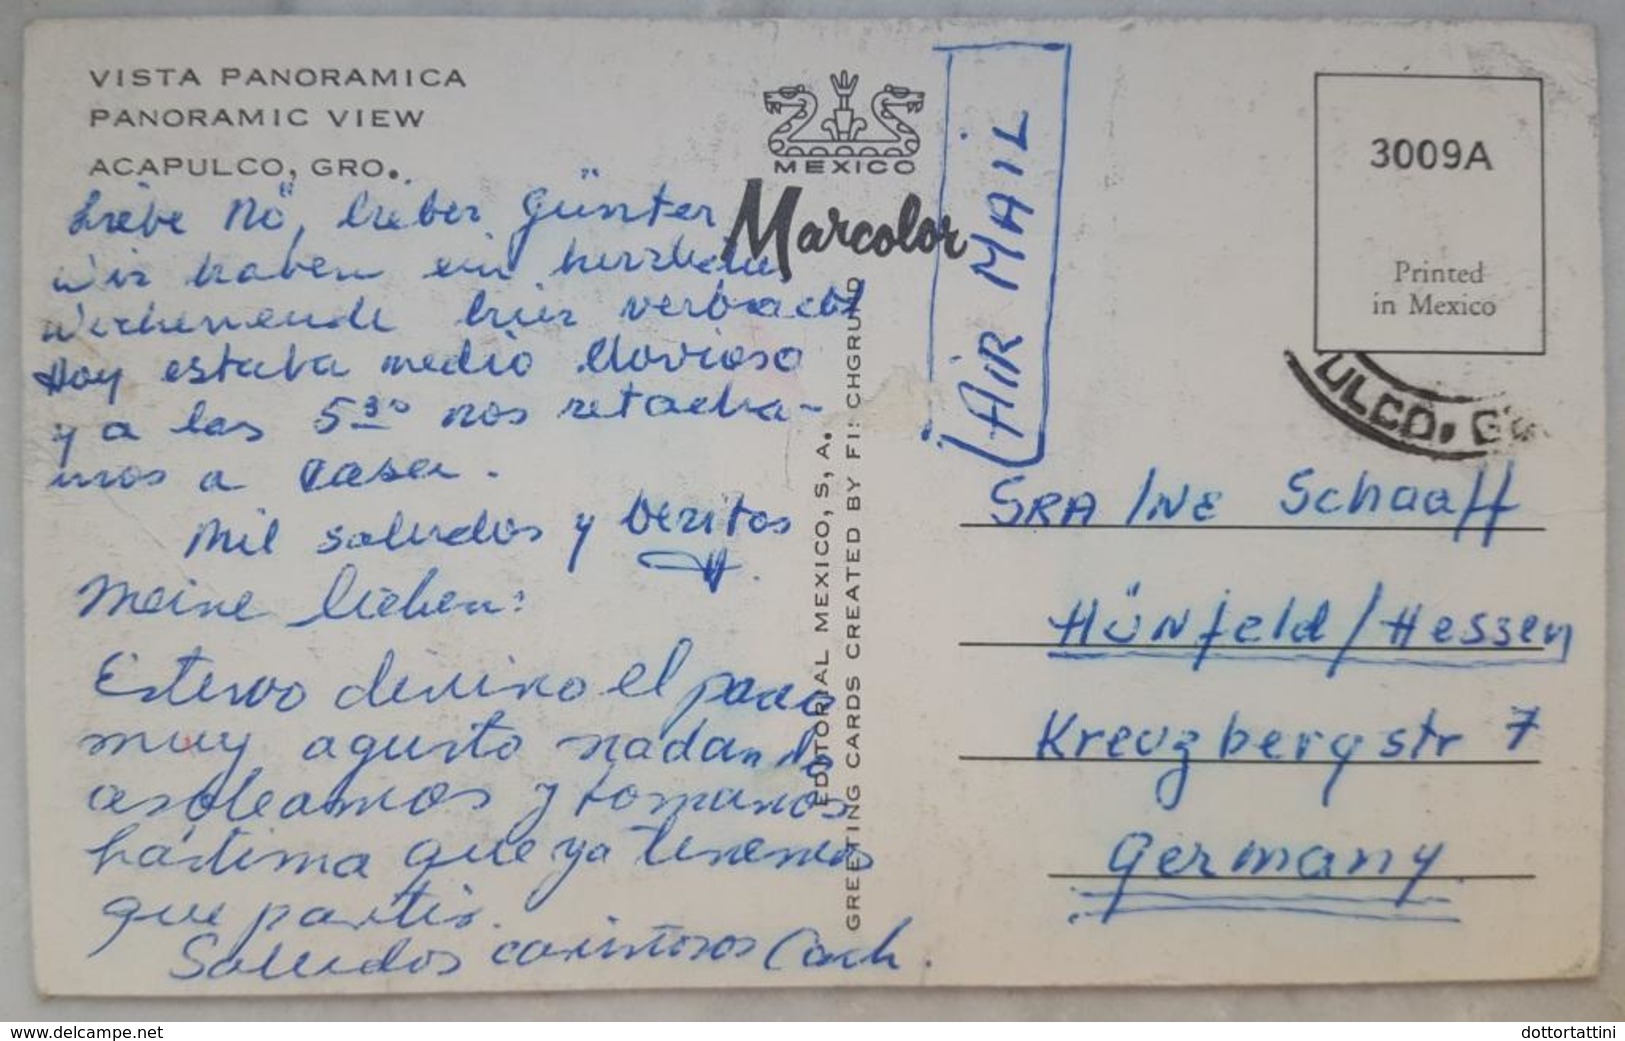 VISTA PANORAMICA
PANORAMIC VIEW
ACAPULCO, GRO.
Liebe Nö, lieber Günter
Wir haben ein herrliches
Wochenende hier verbracht
Hoy estaba medio lluvioso
y a las 5³⁰ nos retacha-
mos a casa.
Mil saludos y besitos
Meine lieben:
Estuvo divino el paseo
muy agusto nadando
asoleamos y tomamos
lástima que ya tenemos
que partir.
Saludos cariñosos
MEXICO
Marcolor
EDITORIAL MEXICO, S, A.
GREETING CARDS CREATED BY FISCHGRUND
AIR MAIL
3009A
Printed
in Mexico
ULCO, G
SRA INE Schaaff
HÜNfeld/Hessen
Kreuzbergstr 7
Germany
www.delcampe.net
dottortattini